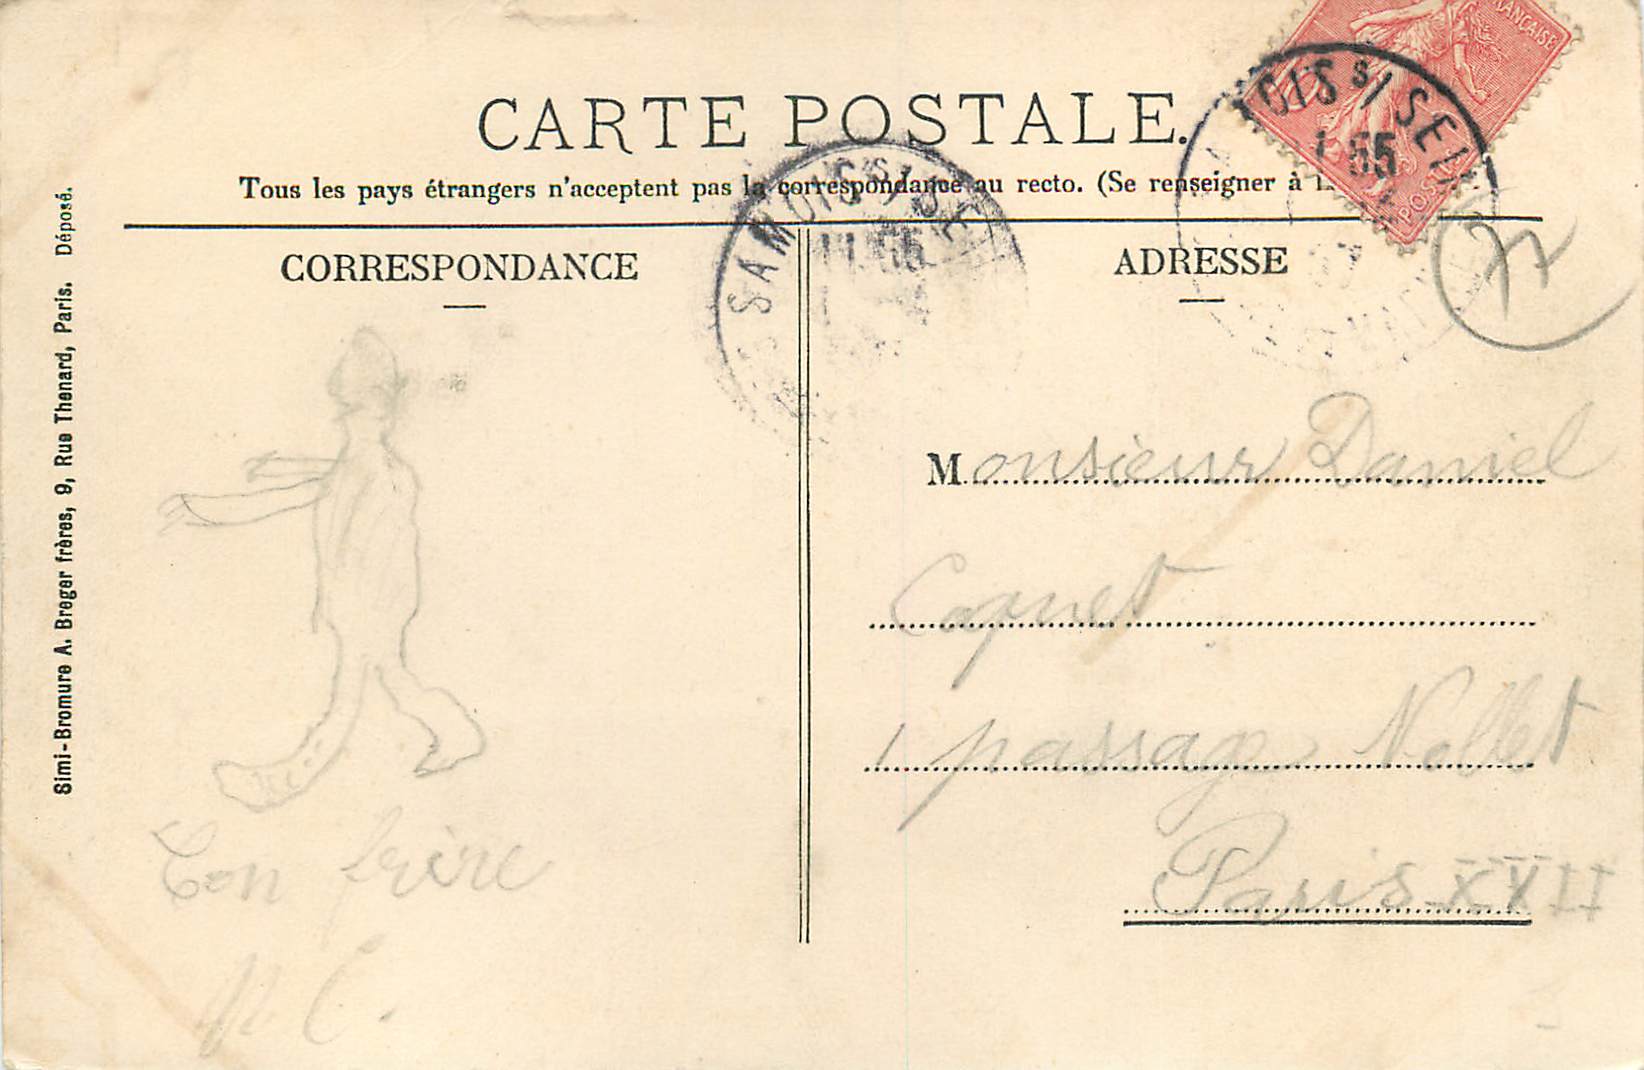 CARTE POSTALE.
Tous les pays étrangers n'acceptent pas la correspondance au recto. (Se renseigner à
CORRESPONDANCE
ADRESSE
Simi-Bromure A. Breger frères, 9, Rue Thenard, Paris. Déposé.
SAMOIS S/ SE
OIS S/ SEIN
1 55
07
POST
ANÇAISE
Monsieur Daniel
Caquet
1 passage Nollet
Paris XVII
Ton frère